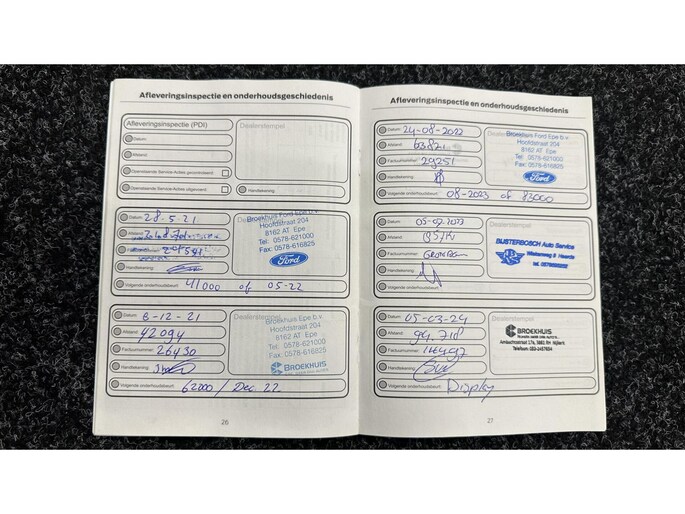 Afleveringsinspectie en onderhoudsgeschiedenis
Afleveringsinspectie (PDI)
Dealerstempel
Datum:
Afstand:
Openstaande Service-Acties gecontroleerd:
Openstaande Service-Acties uitgevoerd:
Handtekening:
Datum: 28-5-21
Afstand:
Handtekening:
Volgende onderhoudsbeurt: 41000 of 05-22
Broekhuis Ford Epe b.v.
Hoofdstraat 204
8162 AT Epe
Tel: 0578-621000
Fax: 0578-616825
Ford
Datum: 6-12-21
Afstand: 42094
Factuurnummer: 26430
Handtekening:
Volgende onderhoudsbeurt: 62000 / Dec. 22
Dealerstempel
Broekhuis Epe b.v.
Hoofdstraat 204
8162 AT Epe
Tel: 0578-621000
Fax: 0578-616825
BROEKHUIS
26
Afleveringsinspectie en onderhoudsgeschiedenis
Datum: 24-08-2022
Afstand: 63821
Factuurnummer: 29251
Handtekening:
Volgende onderhoudsbeurt: 08-2023 of 83000
Broekhuis Ford Epe b.v.
Hoofdstraat 204
8162 AT Epe
Tel: 0578-621000
Fax: 0578-616825
Ford
Datum:
Afstand:
Factuurnummer:
Handtekening:
Volgende onderhoudsbeurt:
Dealerstempel
BIJSTERBOSCH Auto Service
Datum: 05-03-24
Afstand: 94.718
Factuurnummer:
Handtekening:
Volgende onderhoudsbeurt: Display
Dealerstempel
BROEKHUIS
27